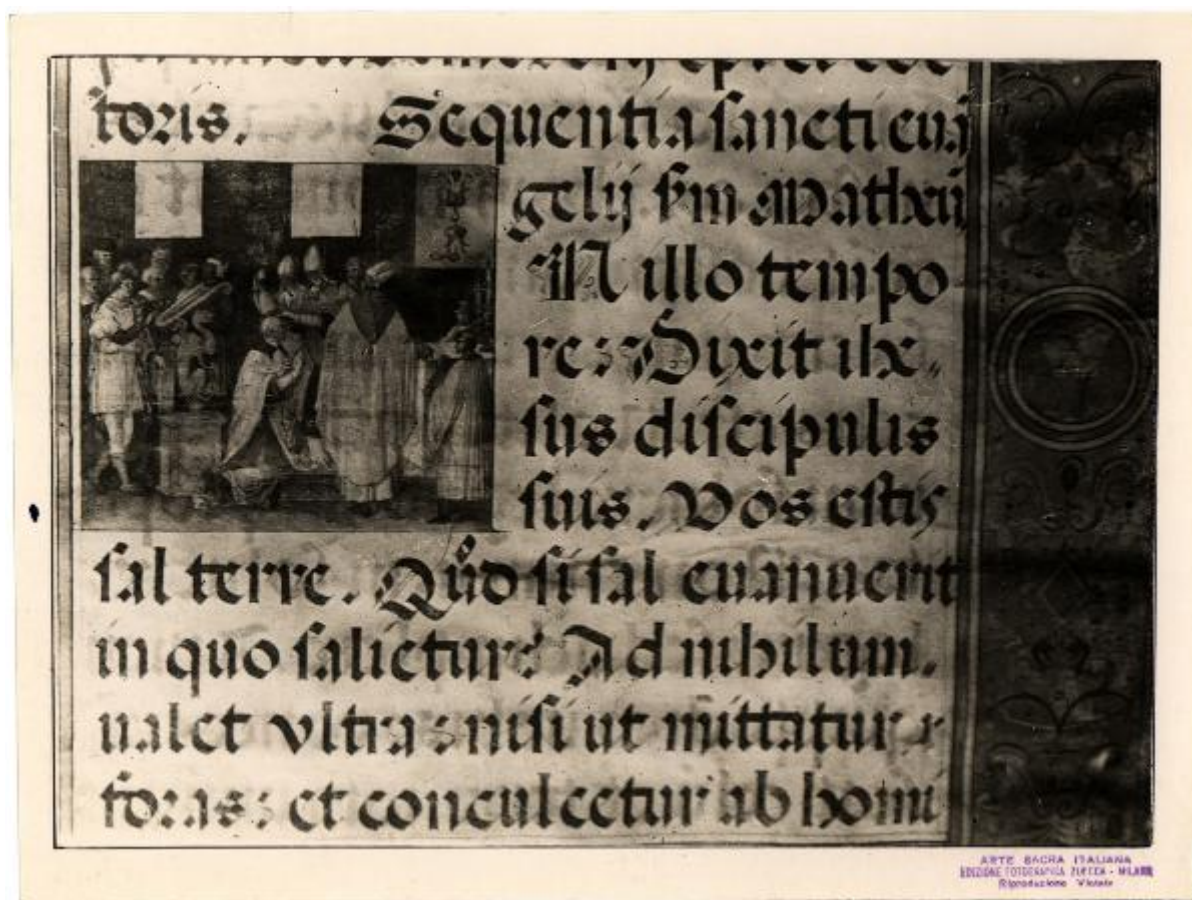 toris. Sequentia sancti euā
gelij fm Mathei
iN illo tempo
re: Dixit ihe
sus discipulis
suis. Vos estis
sal terre. Quo si sal euanuerit
in quo salietur? Ad nihilum.
ualet vltra: nisi ut mittatur
foras: et conculcetur ab homi
ARTE SACRA ITALIANA
EDIZIONE FOTOGRAFICA - MILANO
Riproduzione Vietata